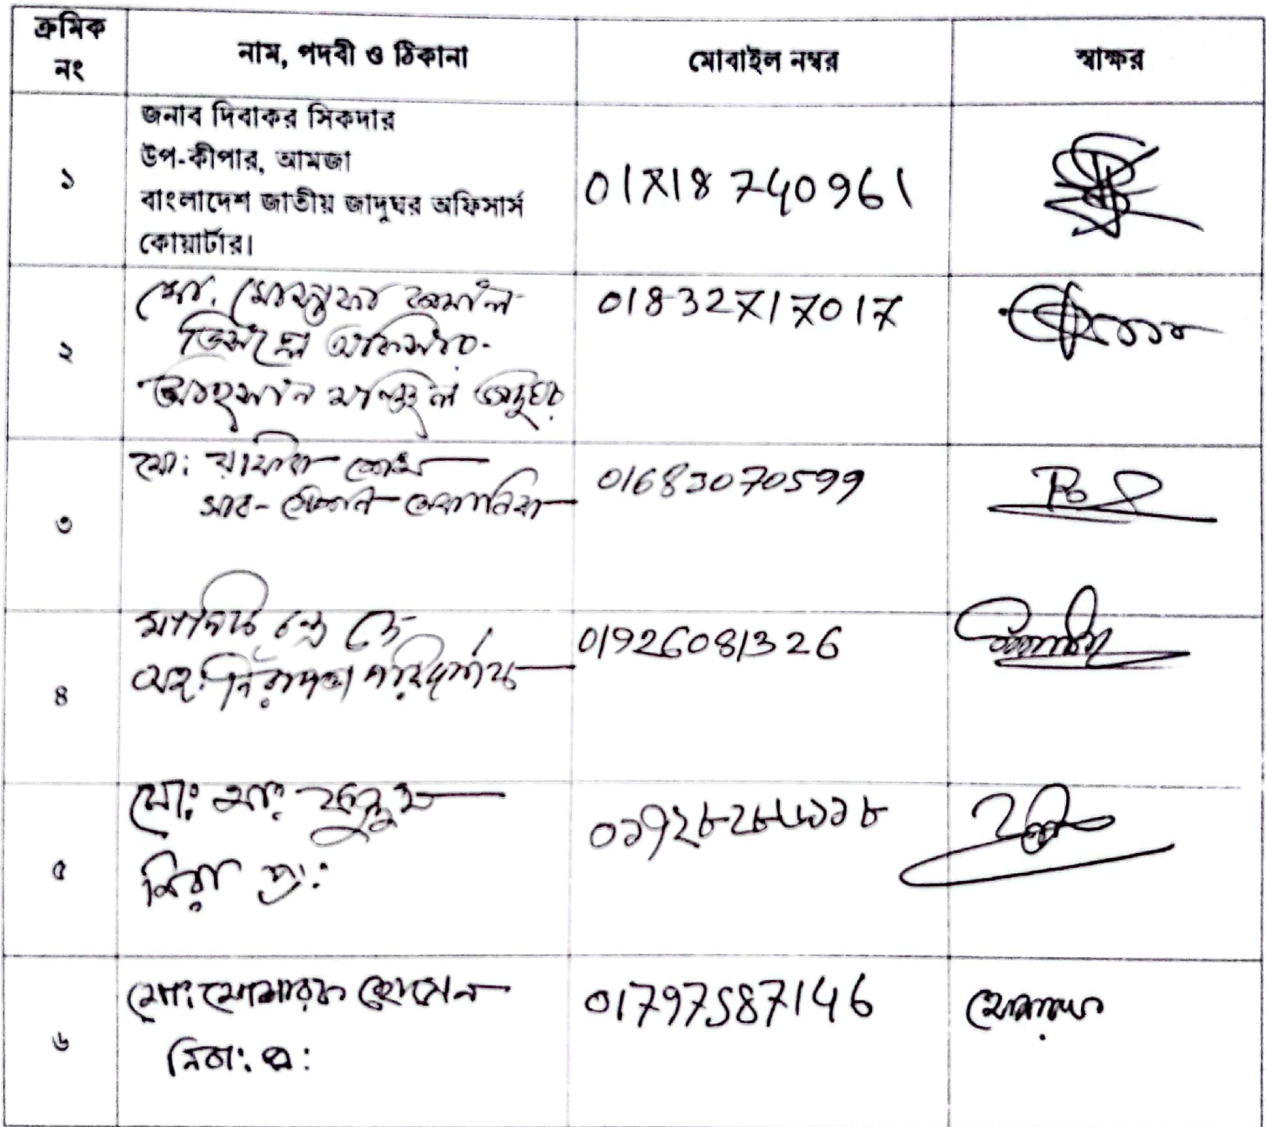 ক্রমিক নং
নাম, পদবী ও ঠিকানা
মোবাইল নম্বর
স্বাক্ষর
১
জনাব দিবাকর সিকদার
উপ-কীপার, আমজা
বাংলাদেশ জাতীয় জাদুঘর অফিসার্স
কোয়ার্টার।
01718 740961
২
মো. মোস্তফা জামাল
ডিসপ্লে অফিসার
আহসান মঞ্জিল জাদুঘর
01832717017
৩
মো:
সাব-স্টেশন
01683070599
৪
চন্দ্র দে
সহ: নিরাপত্তা পরিদর্শক
01926081326
৫
মো: আ:
নিরা প্র:
০১৭২৮২৮৬১১৮
৬
মো: মোশারফ হোসেন
নিরা: প্র:
01797587146
মোশারফ